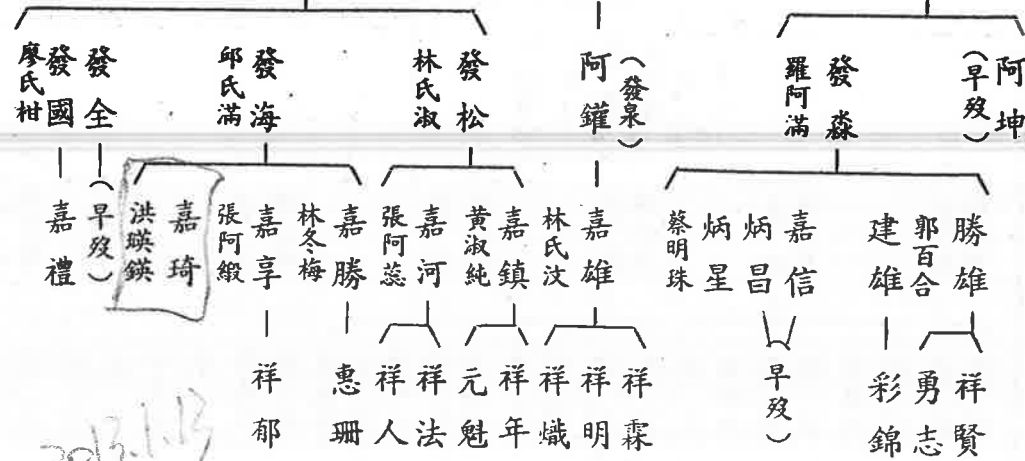 阿坤
（早歿）
發淼
羅阿滿
（發泉）
阿鑵
發松
林氏淑
發海
邱氏滿
發全
發國
廖氏柑
勝雄
郭百合
建雄
嘉信
炳昌
炳星
蔡明珠
嘉雄
林氏汶
嘉鎮
黃淑純
嘉河
張阿蕊
嘉勝
林冬梅
嘉享
張阿緞
嘉琦
洪瑛鍈
（早歿）
嘉禮
祥賢
勇志
彩錦
（早歿）
祥霖
祥明
祥熾
祥年
元魁
祥法
祥人
惠珊
祥郁
2013.1.13